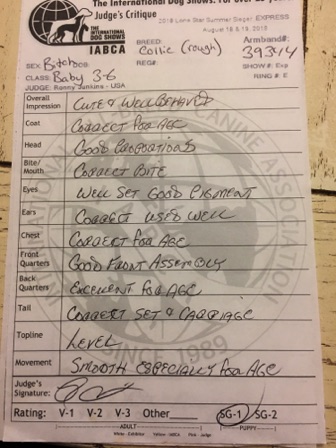 The International Dog Shows. For over 30 years
Judge's Critique
2018 Lone Star Summer Sieger EXPRESS
August 18 & 19, 2018
IABCA
THE INTERNATIONAL DOG SHOWS
BREED:
Collie (rough)
Armband#:
39344
SEX: Bitches
REG#:
SHOW #: Exp
CLASS: Baby 3-6
RING #: E
JUDGE: Ronny Junkins - USA
Overall Impression CUTE & WELL BEHAVED
Coat CORRECT FOR AGE
Head GOOD PROPORTIONS
Bite/ Mouth CORRECT BITE
Eyes WELL SET GOOD PIGMENT
Ears CORRECT USED WELL
Chest CORRECT FOR AGE
Front Quarters GOOD FRONT ASSEMBLY
Back Quarters EXCELLENT FOR AGE
Tail CORRECT SET & CARRIAGE
Topline LEVEL
Movement SMOOTH ESPECIALLY FOR AGE
Judge's Signature:
Rating: V-1 V-2 V-3 Other SG-1 SG-2
ADULT PUPPY
White - Exhibitor Yellow - IABCA Pink - Judge
CANINE ASSOCIATION
SINCE 1989